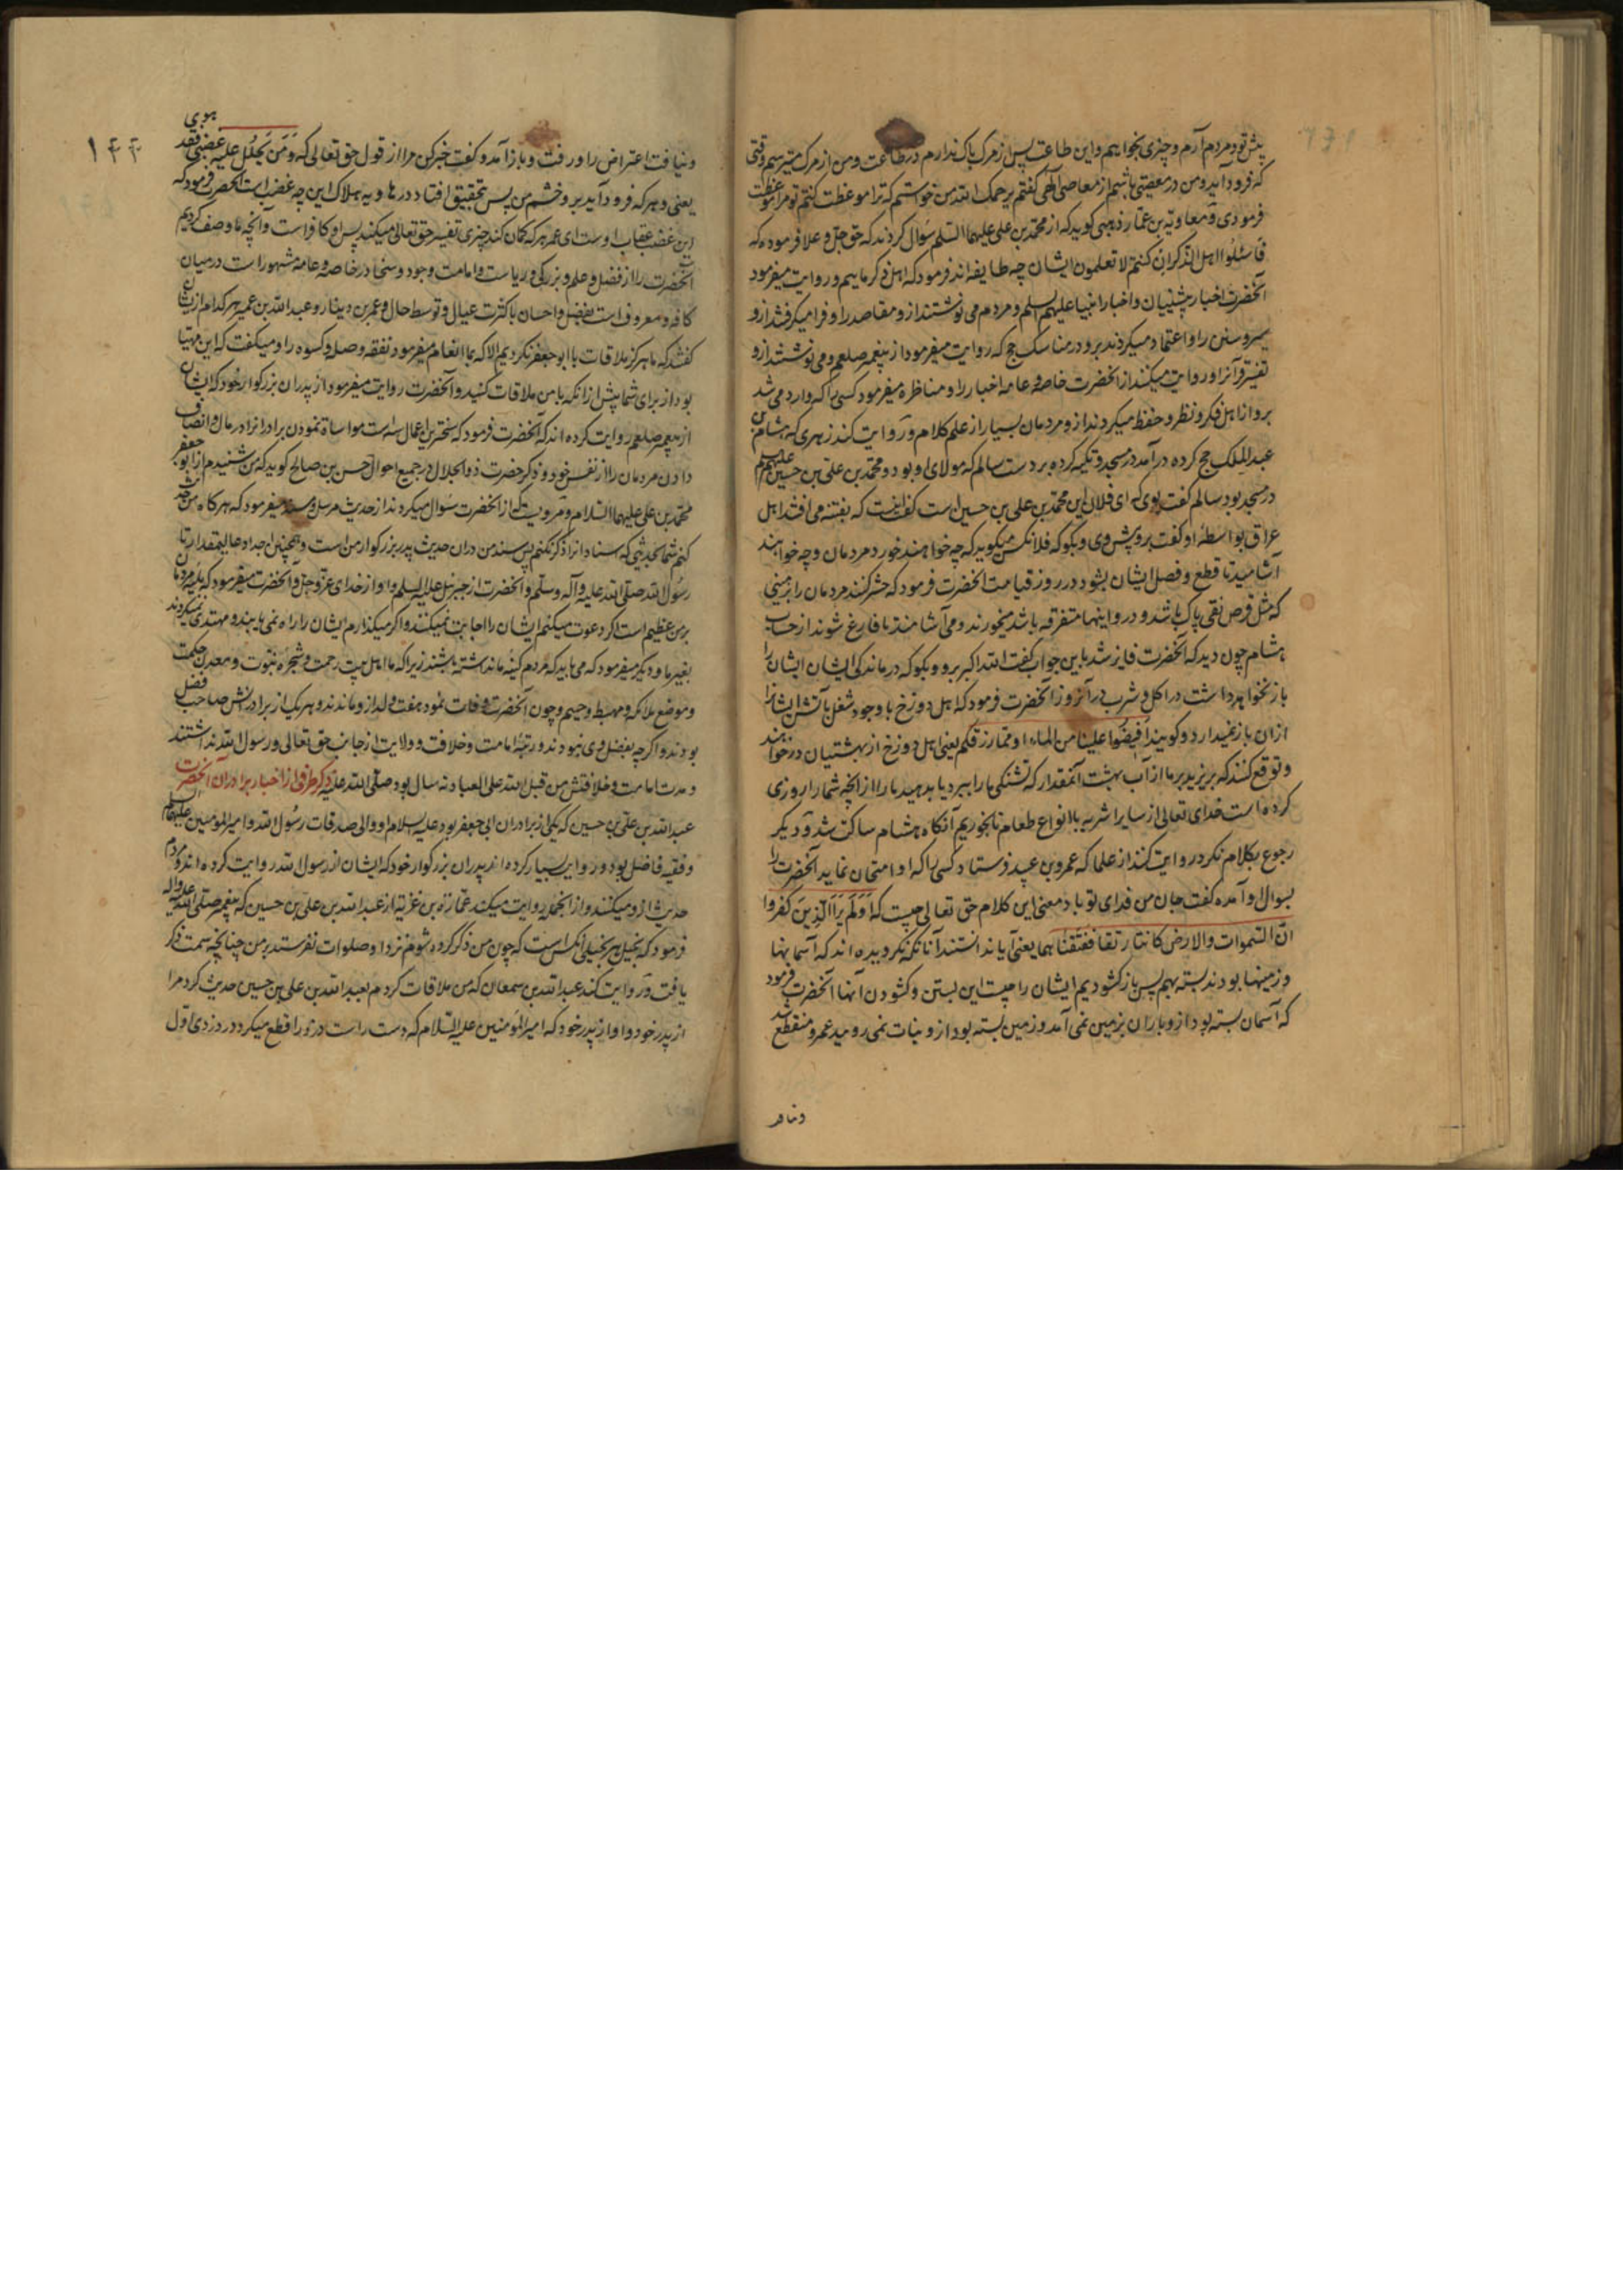 پیش تو و مردم آرم و چیزی بخواهیم و این طاعت پس از مرک باک ندارم در طاعت و من از مرک میترسم وقتی
که فرود آید و من در معصیتی باشم از معاصی الهی گفتم یرحمک الله من خواستم که ترا موعظت کنم تو مرا موعظت
فرمودی و معاویة بن عمار ذهبی کوید که از محمد بن علی علیهما السلم سؤال کردند که حق جل و علا فرموده که
فاسئلوا اهل الذکر ان کنتم لا تعلمون ایشان چه طایفه اند فرمود که اهل ذکر ماییم و روایت میفرمود
آنحضرت اخبار پیشینیان و اخبار انبیا علیهم السلم و مردم می نوشتند ازو مقاصد را و فرا میکرفتند ازو
سیر و سنن را و اعتماد میکردند برو در مناسک حج که روایت میفرمود از پیغمبر صلعم و می نوشتند ازو
تفسیر قرآنرا و روایت میکنند از آنحضرت خاصه و عامه اخبار را و مناظره میفرمود کسی را که وارد می شد
برو از اهل فکر و نظر و حفظ میکردند ازو مردمان بسیار از علم کلام و روایت کند زهری که هشام بن
عبد الملک حج کرده در آمد در مسجد و تکیه کرده بر دست سالم که مولای او بود و محمد بن علی بن حسین علیهم السلم
در مسجد بود سالم گفت بوی که ای فلان این محمد بن علی بن حسین است گفت اینست که بفتنه می افتند اهل
عراق بواسطهٔ او گفت برو پیش وی و بکو که فلانکس میکوید که چه خواهند خورد مردمان و چه خواهند
آشامید تا قطع و فصل ایشان بشود در روز قیامت آنحضرت فرمود که حشر کنند مردمان را بر زمینی
که مثل قرص نقی پاک باشد و درو اینها متفرقه باشد میخورند و می آشامند تا فارغ شوند از حساب
هشام چون دید که آنحضرت فایز شد باین جواب کفت الله اکبر برو و بکو که درماندکی ایشان ایشان را
باز نخواهد داشت در اکل و شرب در آنروز آنحضرت فرمود که اهل دوزخ با وجود شغل بآتش ایشانرا
ازان باز نمیدارد و کویند افیضوا علینا من الماء او مما رزقکم یعنی اهل دوزخ از بهشتیان درخواهند
و توقع کنند که بریزید بر ما از آب بهشت آنمقدار که تشنکی ما را ببرد یا بدهید ما را از آنچه شما را روزی
کرده است خدای تعالی از سایر اشربه یا انواع طعام تا بخوریم آنکاه هشام ساکت شد و دیکر
رجوع بکلام نکرد روایت کنند از علما که عمرو بن عبید فرستاد کسی را که او امتحان نماید آنحضرت را
بسوال او آمده کفت جان من فدای تو باد معنی این کلام حق تعالی چیست که اَوَلَم یَرَ الَّذِینَ کَفَروا
انّ السّموات والارض کانتا رتقا ففتقناهما یعنی آیا ندانستند آنانکه نکرویده اند که آسمانها
و زمینها بودند بسته بهم پس باز کشودیم ایشان را چیست این بستن و کشودن آنها آنحضرت فرمود
که آسمان بسته بود ازو باران بزمین نمی آمد و زمین بسته بود ازو نبات نمی رویید عمرو منقطع شد
و نیافت
۱۴۴
و نیافت اعتراض را و رفت و باز آمد و کفت خبر کن مرا از قول حق تعالی که وَمَن یَحلُل علیه غضبی فقد هوی
یعنی و هر که فرود آید برو خشم من پس بتحقیق افتاد در هاویهٔ هلاک این چه غضب است آنحضرت فرمود که
این غضب عقاب اوست ای عمر هر که کمان کند چیزی تغییر حق تعالی میکند پس او کافر است و آنچه ما وصف کردیم
آنحضرت را از فضل و علم و بزرکی و ریاست و امامت و جود و سخا در خاصه و عامه مشهور است در میان
کافه و معروف است بفضل و احسان با کثرت عیال و توسط حال و عمر بن دینار و عبد الله بن عمیر هر کدام از ایشان
کفتند که ما هرکز ملاقات با ابو جعفر نکردیم الا که بما انعام میفرمود نفقه و صله و کسوه را و میکفت که این مهیا
بود از برای شما پیش از آنکه با من ملاقات کنید و آنحضرت روایت میفرمود از پدران بزرکوار خود که ایشان
از پیغمبر صلعم روایت کرده اند که آنحضرت فرمود که سخترین اعمال سه است مواساة نمودن برادرانرا در مال و انصاف
دادن مردمان را از نفس خود و ذکر حضرت ذو الجلال در جمیع احوال حسن بن صالح کوید که من شنیدم از ابو جعفر
محمد بن علی علیهما السلام و مرویست که از آنحضرت سؤال میکردند از حدیث مرسل و مسند میفرمود که هرکاه من حدیث
کنم شما را بحدیثی که اسناد آنرا ذکر نکنم پس سند من دران حدیث پدر بزرکوار من است و همچنین اجداد عالیمقدار تا
رسول الله صلی الله علیه وآله وسلم و آنحضرت از جبرئیل علیه السلم و او از خدای عزّ و جلّ و آنحضرت میفرمود که بلیهٔ مردمان
بر من عظیم است اکر دعوت میکنم ایشان را اجابت نمیکنند و اکر میکذارم ایشان را راه نمی یابند و مهتدی نمیکردند
بغیر ما و دیکر میفرمود که می باید که مردم کینهٔ ما نداشته باشند زیرا که ما اهل بیت رحمت و شجرهٔ نبوت و معدن حکمت
و موضع ملائکه و مهبط وحییم و چون آنحضرت وفات نمود هفت ولد ازو ماندند و هر یک از برادرانش صاحب فضل
بودند و اکرچه بفضل وی نبودند و رتبهٔ امامت و خلافت و ولایت از جانب حق تعالی و رسول الله نداشتند
و مدت امامت و خلافتش من قبل الله علی العباد نه سال بود صلی الله علیه ذکر طرفی از اخبار برادران آنحضرت
عبد الله بن علی بن حسین که یکی از برادران ابی جعفر بود علیه السلام او والی صدقات رسول الله و امیر المؤمنین علیهما السلم
و فقیه فاضل بود و روایت بسیار کرده از پدران بزرکوار خود که ایشان از رسول الله روایت کرده اند و مردم
حدیث ازو میکنند و از آنجمله روایت میکند عمارة بن غزیة از عبد الله بن علی بن حسین که پیغمبر صلی الله علیه وآله
فرمود که بخیل هر بخیلی آنکس است که چون من ذکر کرده شوم نزد او صلوات نفرستد بر من چنانچه سمت ذکر
یافت و روایت کند عبد الله بن سمعان که من ملاقات کردم بعبد الله بن علی بن حسین حدیث کرد مرا
از پدر خود و او از پدر خود که امیر المؤمنین علیه السلام که دست راست دزد را قطع میکرد در دزدی اوّل